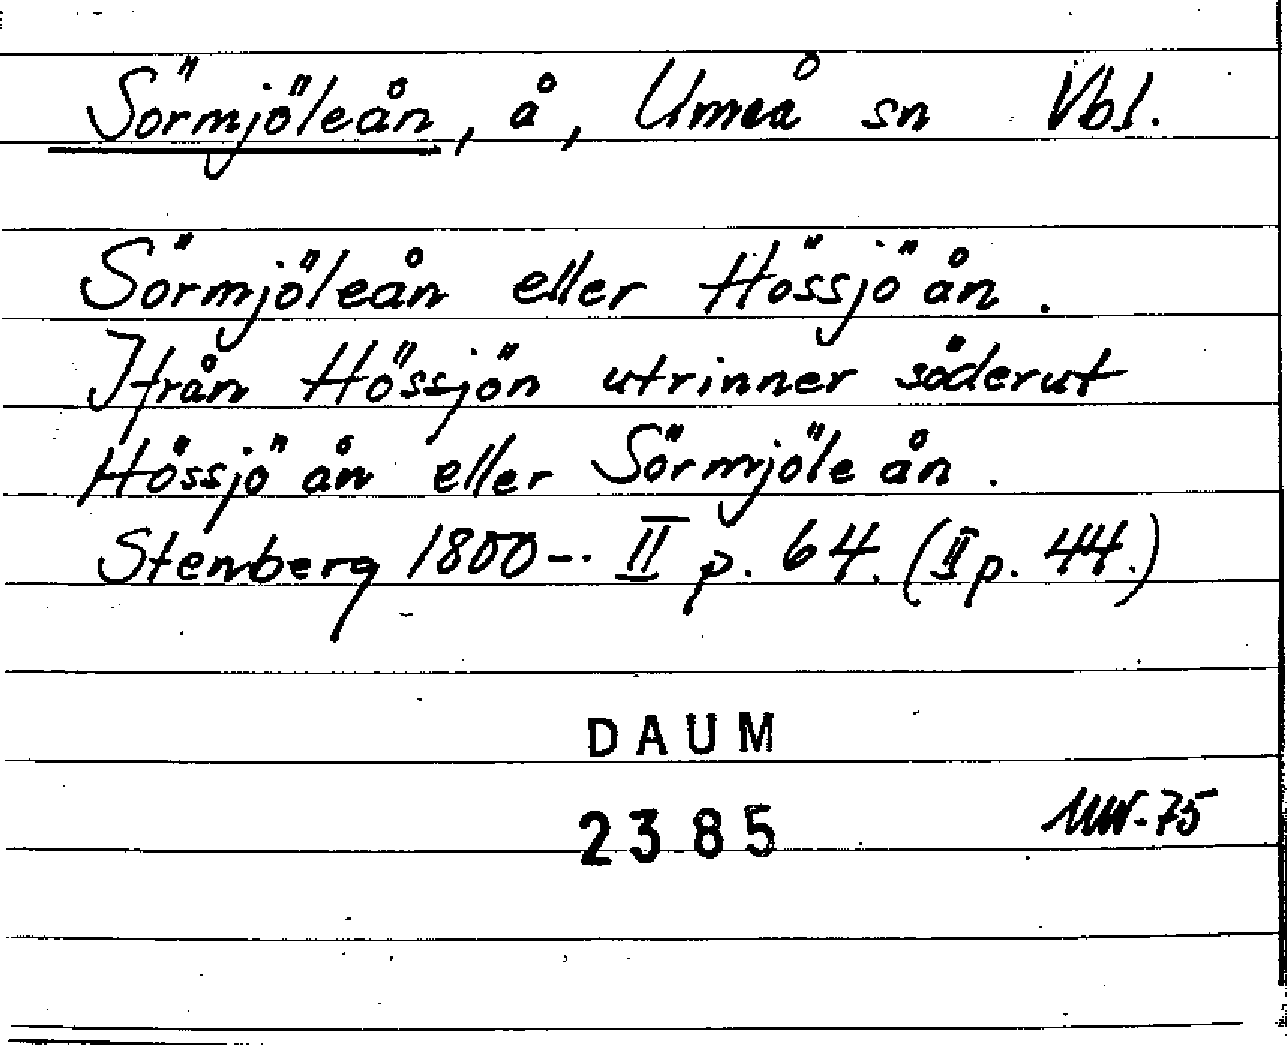 Sörmjöleån, å, Umeå sn Vbl.
Sörmjöleån eller Hössjö ån.
Ifrån Hössjön utrinner söderut
Hössjö ån eller Sörmjöle ån.
Stenberg 1800-. II p. 64. (II p. 44.)
DAUM
2385
-75